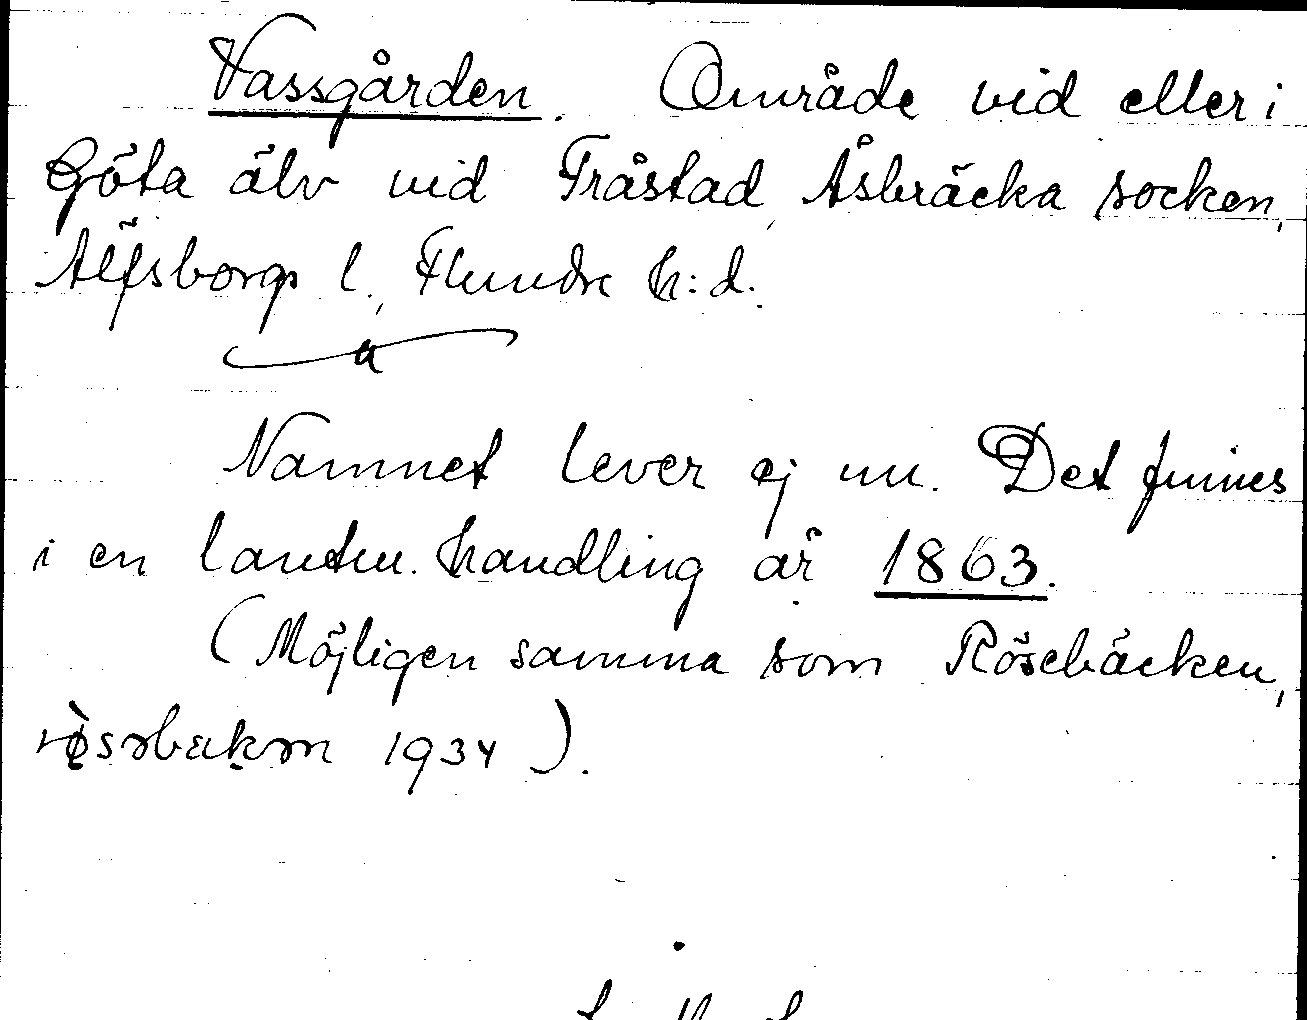 Vassgården. Område vid eller i
Göta älv vid Fråstad, Åsbräcka socken,
Älfsborgs l., Flundre h:d.
Namnet lever ej nu. Det finnes
i en lantm. handling år 1863.
(Möjligen samma som Rösebäcken,
1934).